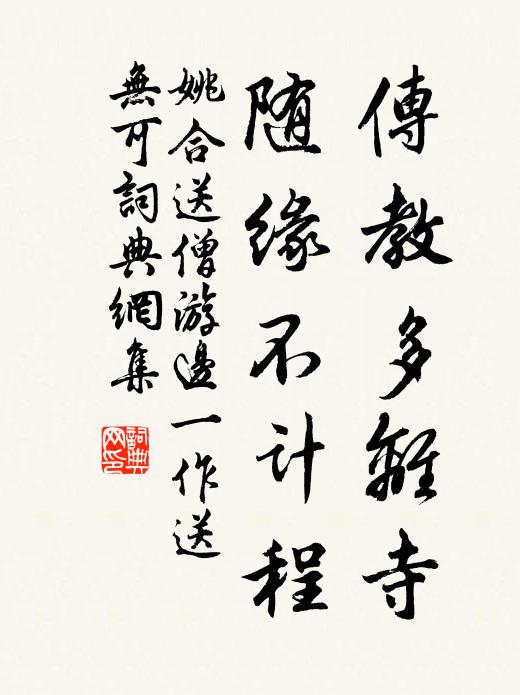 傳教多離寺
随缘不计程
姚合送僧游邊一作送
無可詞典網集
詞典
网印